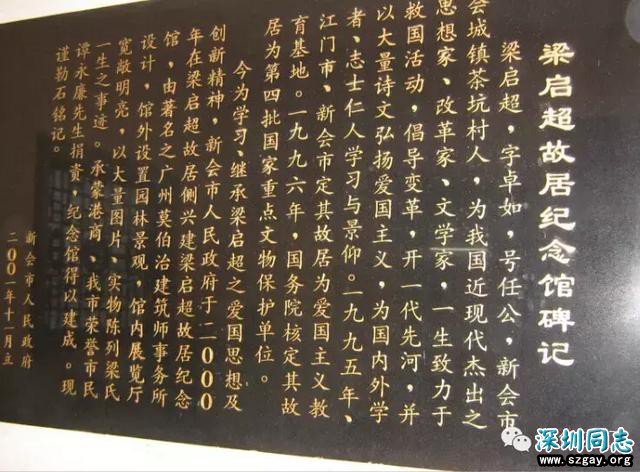 梁启超故居纪念馆碑记
梁启超，字卓如，号任公，新会市
会城镇茶坑村人，为我国近现代杰出之
思想家、改革家、文学家，一生致力于
救国活动，倡导变革，开一代先河，并
以大量诗文弘扬爱国主义，为国内外学
者、志士仁人学习与景仰。一九九五年、
江门市、新会市定其故居为爱国主义教
育基地。一九九六年，国务院核定其故
居为第四批国家重点文物保护单位。
今为学习、继承梁启超之爱国思想及
创新精神，新会市人民政府于二000
年在梁启超故居侧兴建梁启超故居纪念
馆，由著名之广州莫伯治建筑师事务所
设计，馆外设置园林景观，馆内展览厅
宽敞明亮，以大量图片、实物陈列梁氏
一生之事迹。承蒙港商、我市荣誉市民
谭永廉先生捐资，纪念馆得以建成。现
谨勒石铭记。
新会市人民政府
二00一年十一月立
深圳同志
www.szgay.org